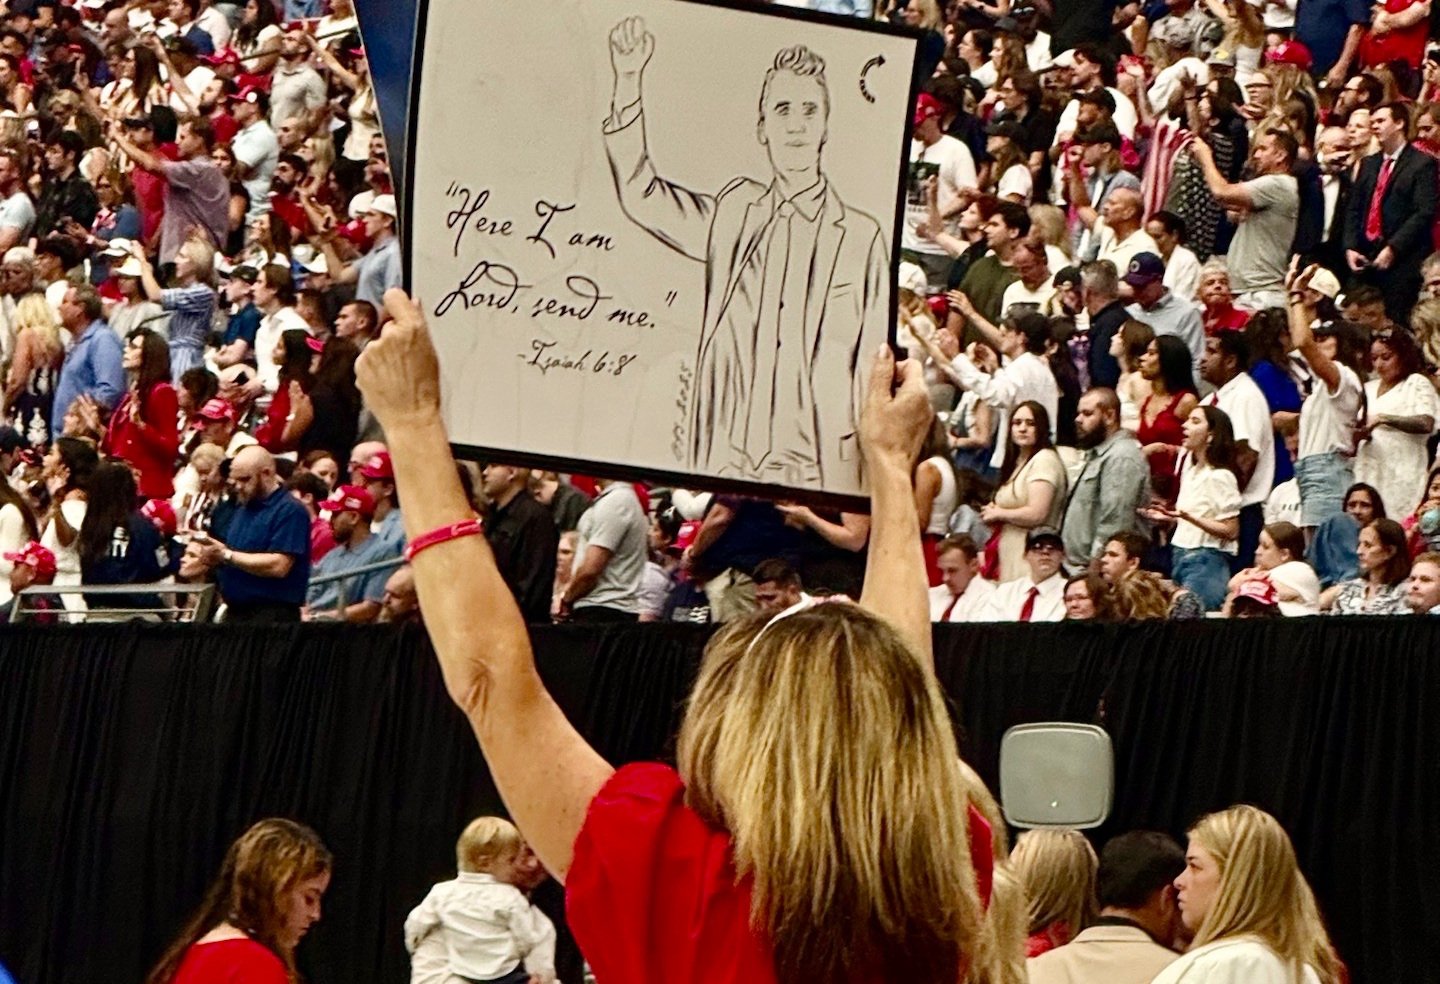 "Here I am
Lord, send me."
-Isaiah 6:8